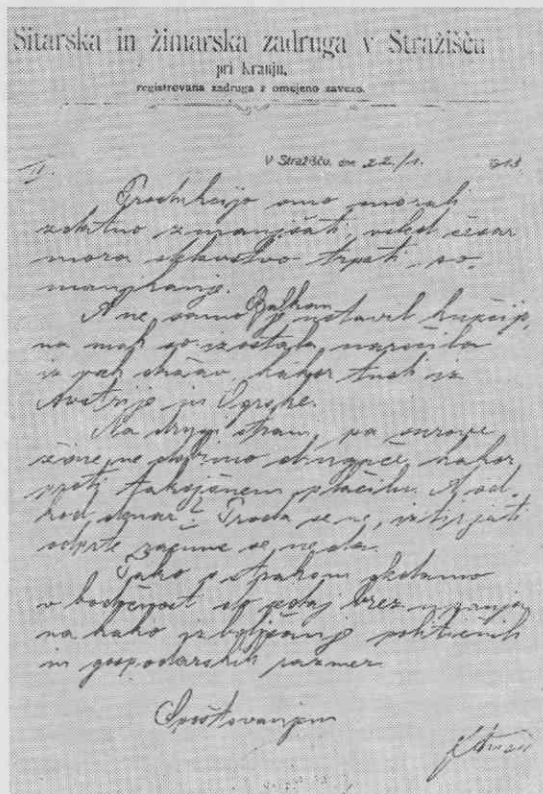 Sitarska in žimarska zadruga v Stražišču
pri Kranju,
registrovana zadruga z omejeno zavezo.
V Stražišču, dne 22/1. 913
II.
Produkcijo smo morali
znatno zmanjšati, vsled česar
mora delavstvo trpeti po-
manjkanje.
A ne samo Balkan je ustavil kupčijo,
na mah so izostala naročila
iz vseh držav, kakor tudi iz
Avstrije in Ogrske.
Na drugi strani pa surove
žime ne dobimo drugače, kakor
proti takojšnem plačilu. A od-
kod denar? Proda se ne, iztirjati
odprte račune se ne da.
Tako s strahom gledamo
v bodočnost do sedaj brez upanja
na kako izboljšanje političnih
in gospodarskih razmer.
Spoštovanjem